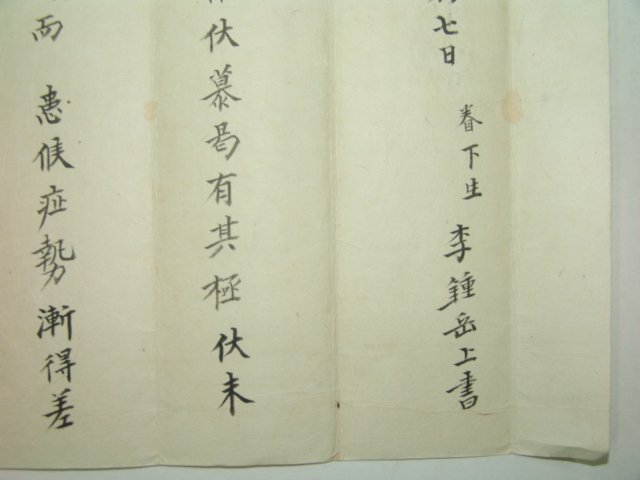 七日 眷下生 李鍾岳上書
伏慕曷有其極 伏未
患候症勢漸得差